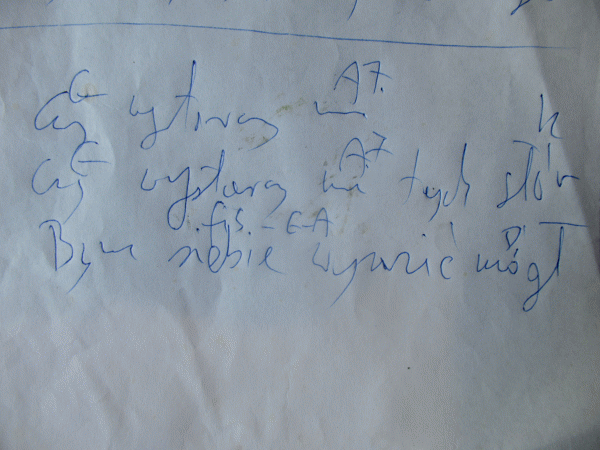 G A7
Czy wystarczy mi
h
G A7
Czy wystarczy mi tych słów
fis - G - A D
Bym siebie wyrazić mógł